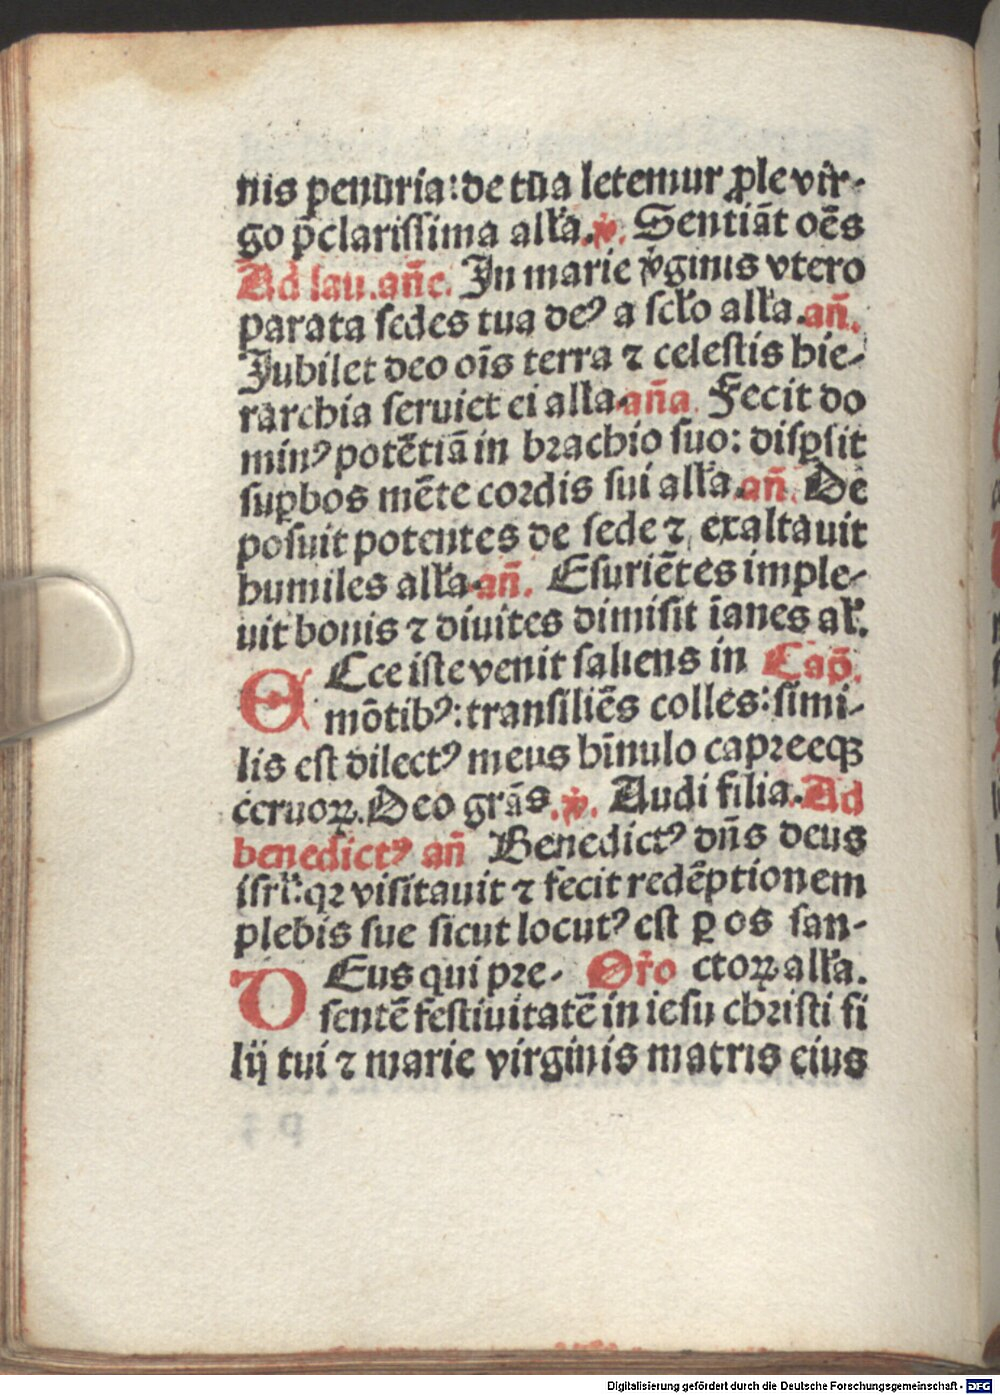 nis penuria: de tua letemur ꝓle vir-
go p̄clarissima alľa. ℣. Sentiāt oēs
Ad lau. añe. In marie v̓ginis vtero
parata sedes tua deꝰ a secľo alľa. añ.
Jubilet deo oīs terra ⁊ celestis hie-
rarchia seruiet ei alľa. aña Fecit do
minꝰ potētiā in brachio suo: disꝑsit
suꝑbos mēte cordis sui alľa. añ. De
posuit potentes de sede ⁊ exaltauit
humiles alľa. añ. Esuriētes imple-
uit bonis ⁊ diuites dimisit īanes al̓.
ECce iste venit saliens in Cap̄.
mōtibꝰ: transiliēs colles: simi-
lis est dilectꝰ meus hīnulo capreeqꝫ
ceruoꝝ. Deo grās. ℣. Audi filia. Ad
benedictꝰ añ Benedictꝰ dñs deus
isrľ: qꝛ visitauit ⁊ fecit redēptionem
plebis sue sicut locutꝰ est ꝑ os san-
DEus qui pre- Or̄o ctoꝝ alľa.
sentē festiuitatē in iesu christi fi
lij tui ⁊ marie virginis matris eius
Digitalisierung gefördert durch die Deutsche Forschungsgemeinschaft - DFG